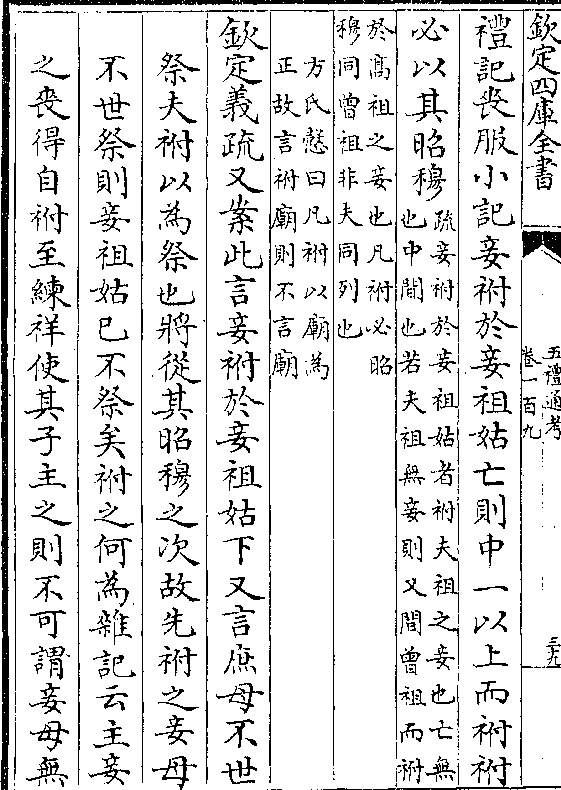 欽定四庫全書
五禮通考
卷一百九
三九
禮記喪服小記妾祔於妾祖姑亡則中一以上而祔祔
必以其昭穆
疏妾祔於妾祖姑者祔夫祖之妾也亡無
也中間也若夫祖無妾則又間曾祖而祔
於髙祖之妾也凡祔必昭
穆同曾祖非夫同列也
方氏慤曰凡祔以廟為
正故言祔廟則不言廟
欽定義疏又案此言妾祔於妾祖姑下又言庶母不世
祭夫祔以為祭也將從其昭穆之次故先祔之妾母
不世祭則妾祖姑已不祭矣祔之何為雜記云主妾
之喪得自祔至練祥使其子主之則不可謂妾母無